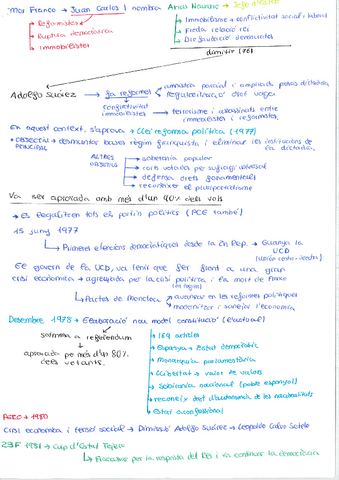 Mor Franco → Juan Carlos I nombra Arias Navarro →
→ Reformistes
→ Ruptura democràtica
→ Immobilistes
→ Immobilisme + conflictivitat social i laboral
dimitir (76)
Adolfo Suárez → fa reformes
amnistia parcial i ampliada presos dictadura
conflictivitat immobilistes → terrorisme i assassinats entre immobilistes i reformistes.
En aquest context, s'aprova → Llei reforma política (1977)
• OBJECTIU PRINCIPAL → desmuntar bases règim franquista i eliminar les institucions de la dictadura.
ALTRES OBJECTIUS
→ sobirania popular
→ corts votades per sufragi universal
→ defensa drets fonamentals
→ reconeixer el pluripartidisme
Va ser aprovada amb més d'un 90% dels vots
→ Es legalitzen tots els partits polítics (PCE també)
15 juny 1977
→ Primeres eleccions democràtiques desde la II Rep. → Guanya la UCD
El govern de la UCD, va tenir que fer front a una gran
crisi econòmica + agreujada per la crisi política i la mort de Franco
→ Pactes de Moncloa
avançar en les reformes polítiques
modernitzar i sanejar l'economia
Desembre 1978 → Elaboració nou model constitució
sotmesa a referendum
↓
aprovada per més d'un 80% dels votants.
→ 169 articles
→ Espanya → Estat democràtic
→ Monarquia parlamentària
→ Llibertat
→ Sobirania nacional (poble espanyol)
→ reconeix dret d'autonomia de les nacionalitats
→ estat aconfessional
1980
Crisi economica i tensió social → Dimissió Adolfo Suárez → Leopoldo Calvo Sotelo
23F 1981 → Cop d'Estat Tejero
→ Fracassar per la resposta del Rei i va continuar la democràcia